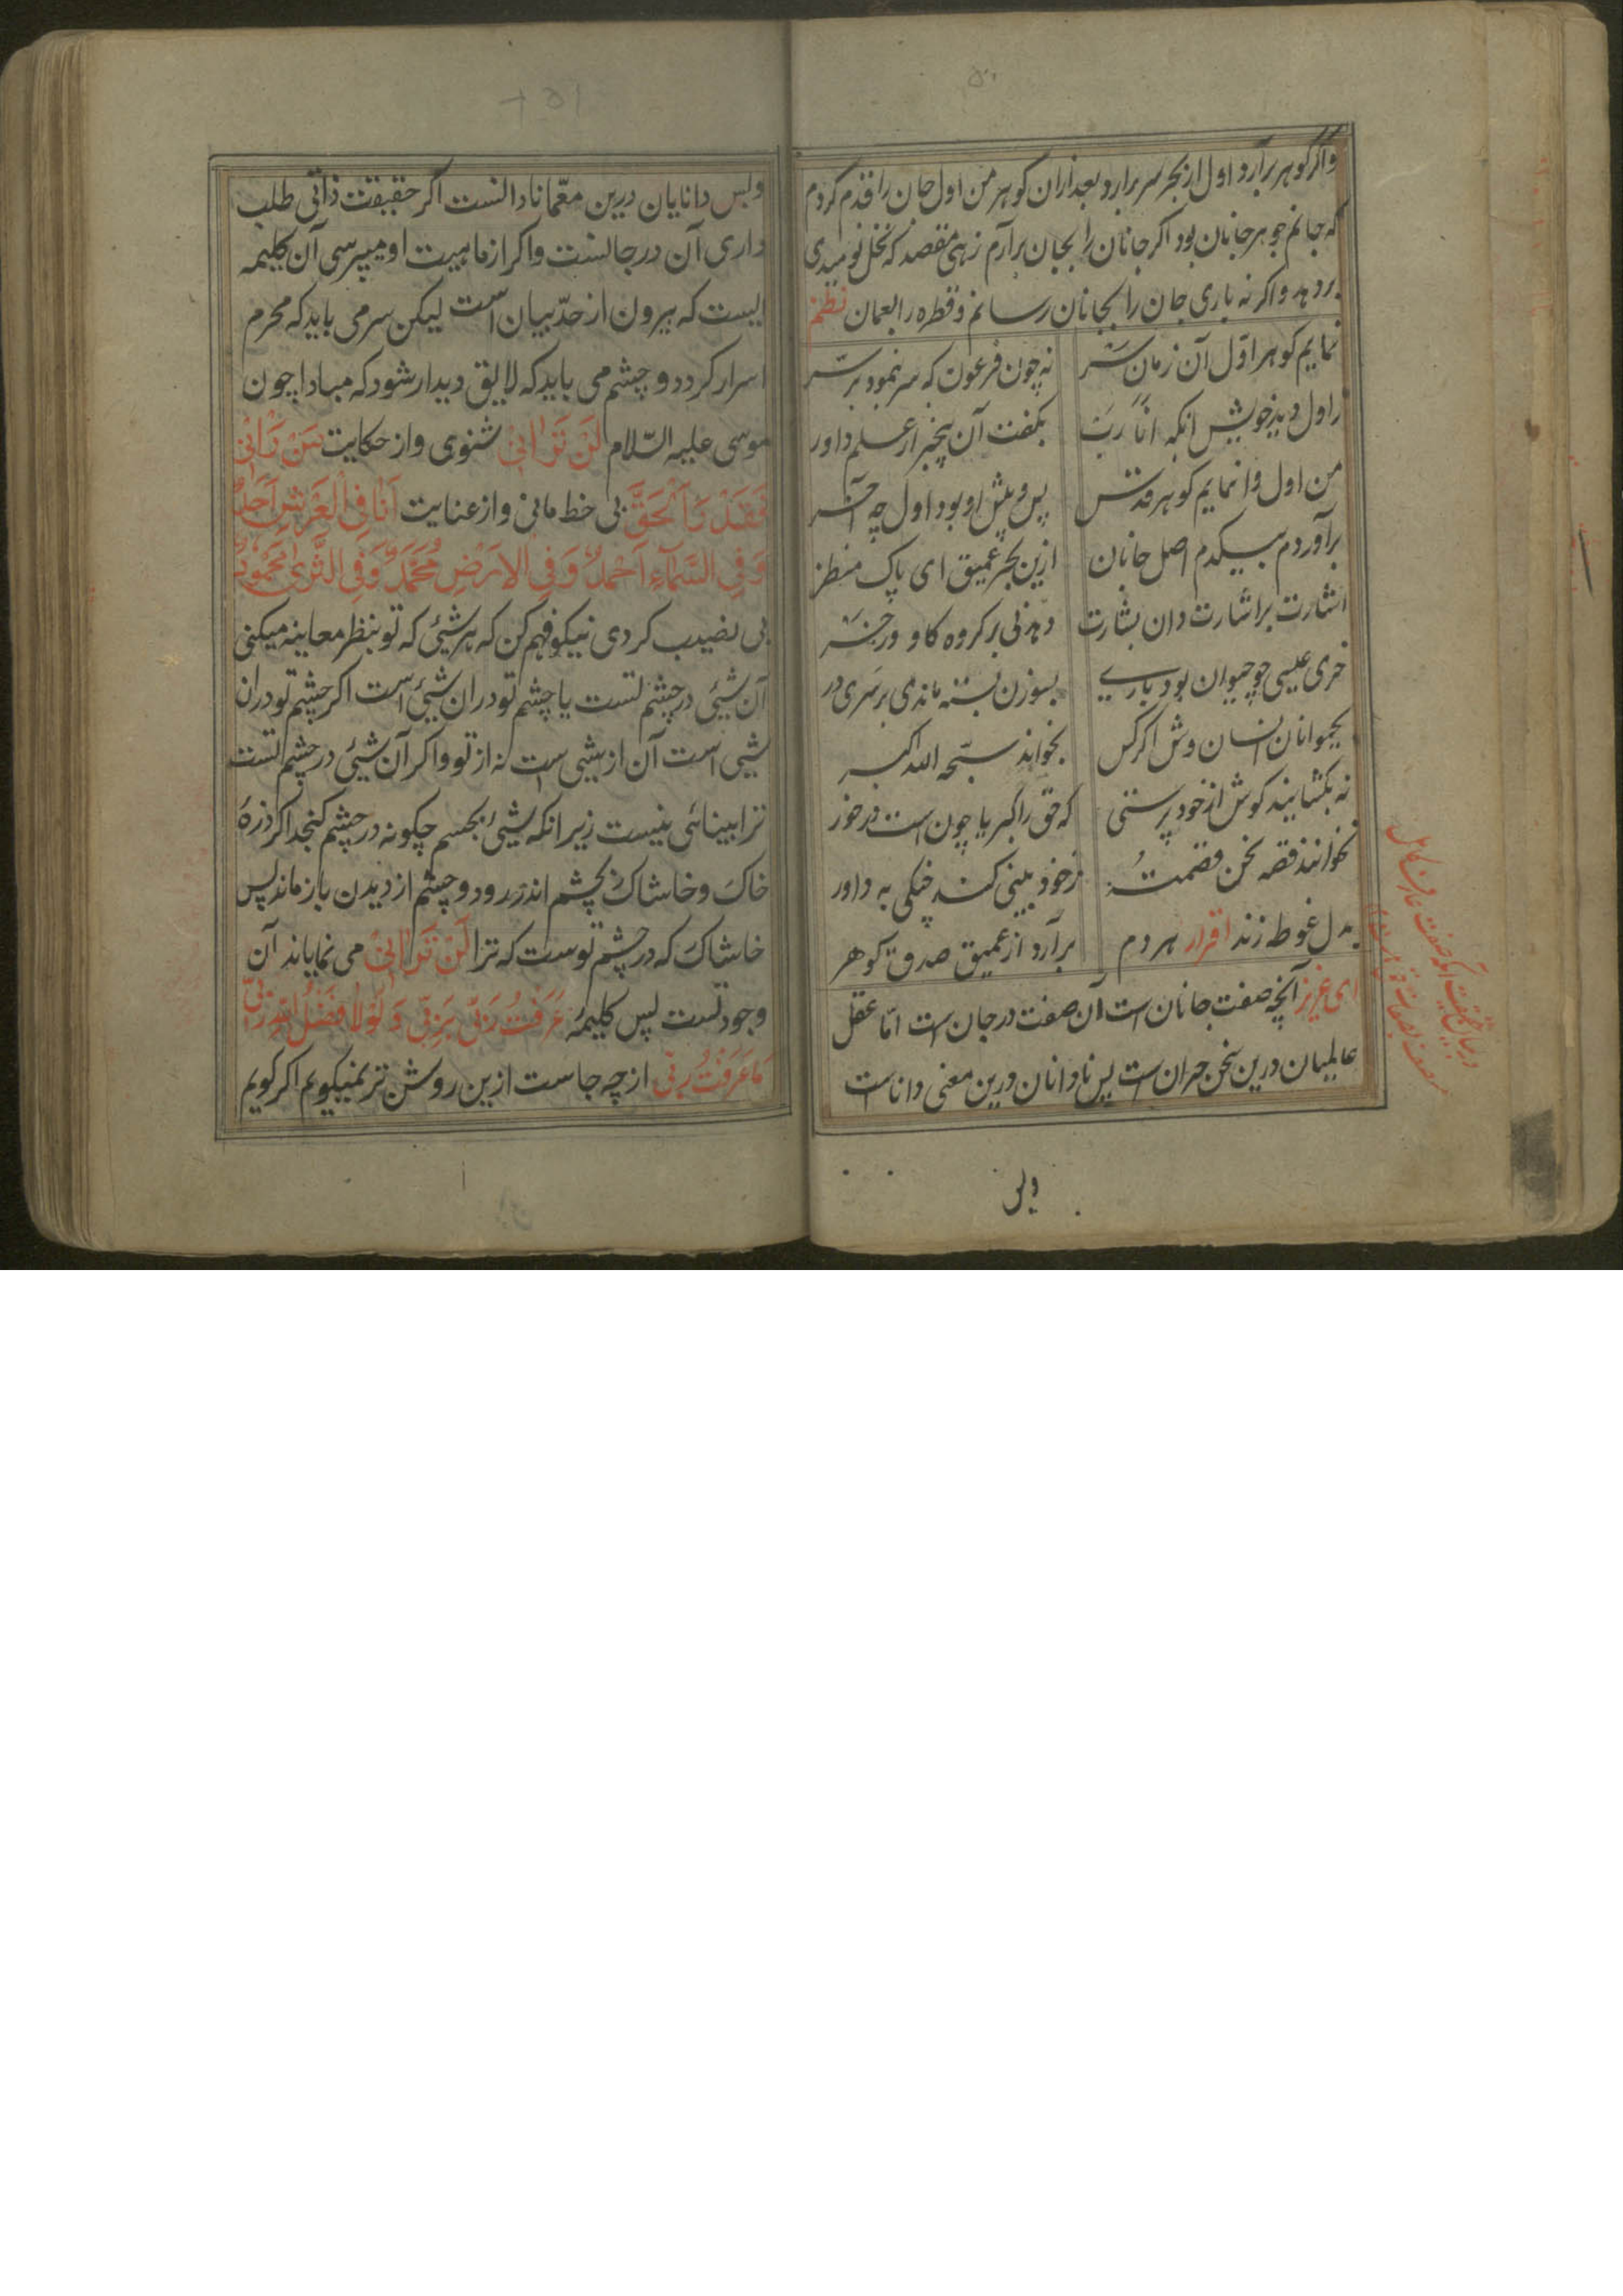 واگر گوهر برآرد اول از بحر سر برآرد بعد ازان گوهر من اول جان را قدم کردم
که جانم جوهر جانان بود اگر جانان را بجان برآرم زهی مقصد که نخل نومیدی
بر دهد واگر نه باری جان را بجانان رسانم و قطره را بعمان نظم
نمایم گوهر اول آن زمان سر نه چون فرعون که سر نمود بر سر
ز اول دید خویش انکه انا رب بگفت آن بیخبر از علم داور
من اول وا نمایم گوهر قدس پس و پیش او بود اول چه آخر
برآوردم بیکدم اصل جانان ازین بحر عمیق ای پاک منظر
اشارت بر اشارت دان بشارت دهد نی بر گروه گاو و در خر
خری عیسی چو حیوان بود باری بسوزن بسته ماندی بر سری در
بحیوانان انسان وش اگر کس بخواند سبحه الله اکبر
نه بکشایند گوش از خود پرستی که حق را کبریا چون است در خور
نخوانند قصه نحن قسمت ز خود بینی کند جنگی به داور
بدل غوطه زند اقرار هر دم برآرد از عمیق صدق گوهر
ای عزیز آنچه صفت جانان است آن صفت در جان است امّا عقل
عالمیان درین سخن حیران است پس نادانان درین معنی داناست
وپس
وپس دانایان درین معمّا نادانست اگر حقیقت ذاتی طلب
داری آن در جانست واگر از ماهیت او میپرسی آن کلیمه
ایست که بیرون از حدّ بیان است لیکن سر می باید که محرم
اسرار گردد و چشم می باید که لایق دیدار شود که مبادا چون
موسی علیه السّلام لَنْ تَرَانِیْ شنوی واز حکایت مَنْ رَاٰنِیْ
فَقَدْ رَاَ الْحَقَّ بی خط مانی واز عنایت اَنَا فِی الْعَرْشِ اَحَدٌ
وَفِی السَّمَآءِ اَحْمَدٌ وَفِی الْاَرْضِ مُحَمَّدٌ وَفِی الثَّرٰی مَحْمُوْدٌ
بی نصیب گردی نیکو فهم کن که هر شیئی که تو بنظر معاینه میکنی
آن شیئی در چشم تست یا چشم تو دران شیئی است اگر چشم تو دران
شیی است آن از شیی است نه از تو واگر آن شیئی در چشم تست
ترا بینائی نیست زیرا نکه شیئی بجسم چگونه در چشم گنجد اگر ذرهٔ
خاک و خاشاک بچشم اندر رود و چشم از دیدن باز ماند پس
خاشاک که در چشم توست که ترا لَنْ تَرَانِیْ می نمایاند آن
وجود تست پس کلیمهٔ عَرَفْتُ رَبِّیْ بِرَبِّیْ وَلَوْلَا فَضْلُ اللهِ رَبِّیْ
مَا عَرَفْتُ رَبِّیْ از چه جاست ازین روشن تر نمیگویم اگر گویم